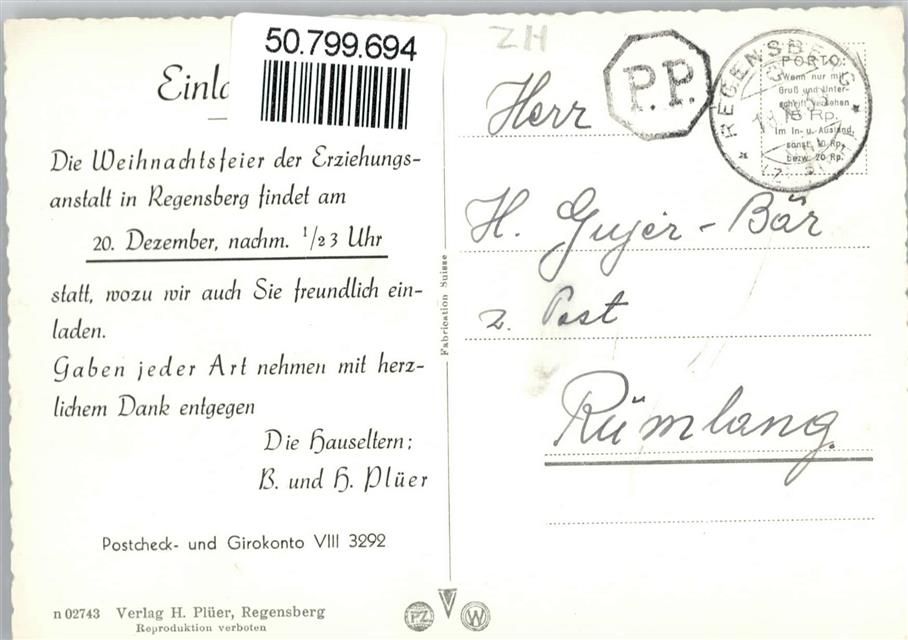 50.799.694
ZH
Die Weihnachtsfeier der Erziehungs-
anstalt in Regensberg findet am
20. Dezember, nachm. 1/23 Uhr
statt, wozu wir auch Sie freundlich ein-
laden.
Gaben jeder Art nehmen mit herz-
lichem Dank entgegen
Die Hauseltern:
B. und H. Plüer
Postcheck- und Girokonto VIII 3292
n 02743 Verlag H. Plüer, Regensberg
Reproduktion verboten
Fabrication Suisse
PZ W
P.P.
REGENSBERG
PORTO:
Wenn nur mit
Gruß und Unter-
schrift versehen
Rp.
Im In- u. Ausland,
sonst 10 Rp.
bezw. 20 Rp.
Herr
H. Gujer-Bär
z. Post
Rümlang.